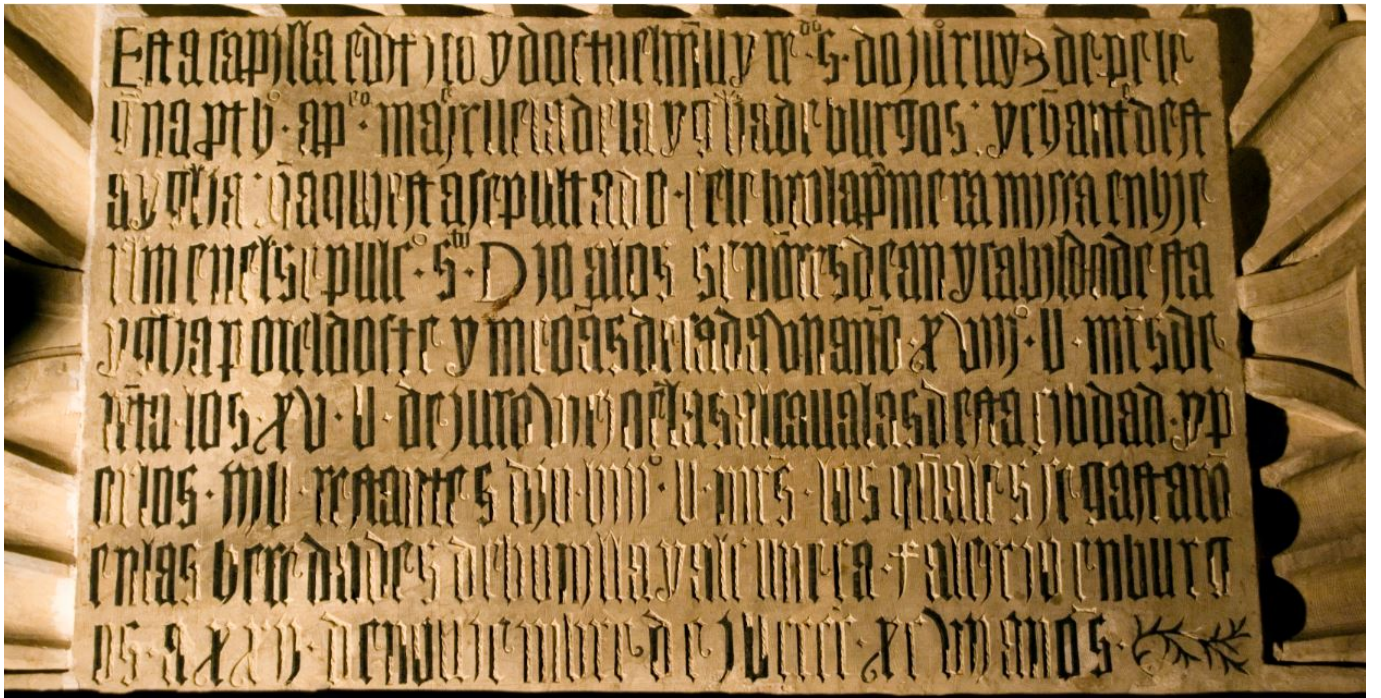 Esta capilla edifico y doto el muy rᵈᵒ · s · do juº ruyz de pele
gna ptº · apᶜᵒ · maescuela de la yglia de burgos : y chantᵉ dest
a yglia : q̄ aqui esta sepultado · celebro la p̄mera missa en hie
rlm en el sepulcº · sᵗᵒ · Dio a los señores dean y cabildo desta
yglia por el docte y me͞oās de cada vn año · xviiiº · U · mr̄s de
r̄eta los · xv · U · de juro viejo ē las alcaualas desta cibdad · y p
or los · iiiU · restantes dio · º · U · mr̄s · los q̄ales se gastarō
en las heredades de y alcuneca · falescio en burg
os · a xxiv · de nouiembre de jU cccc · xcvii años ·